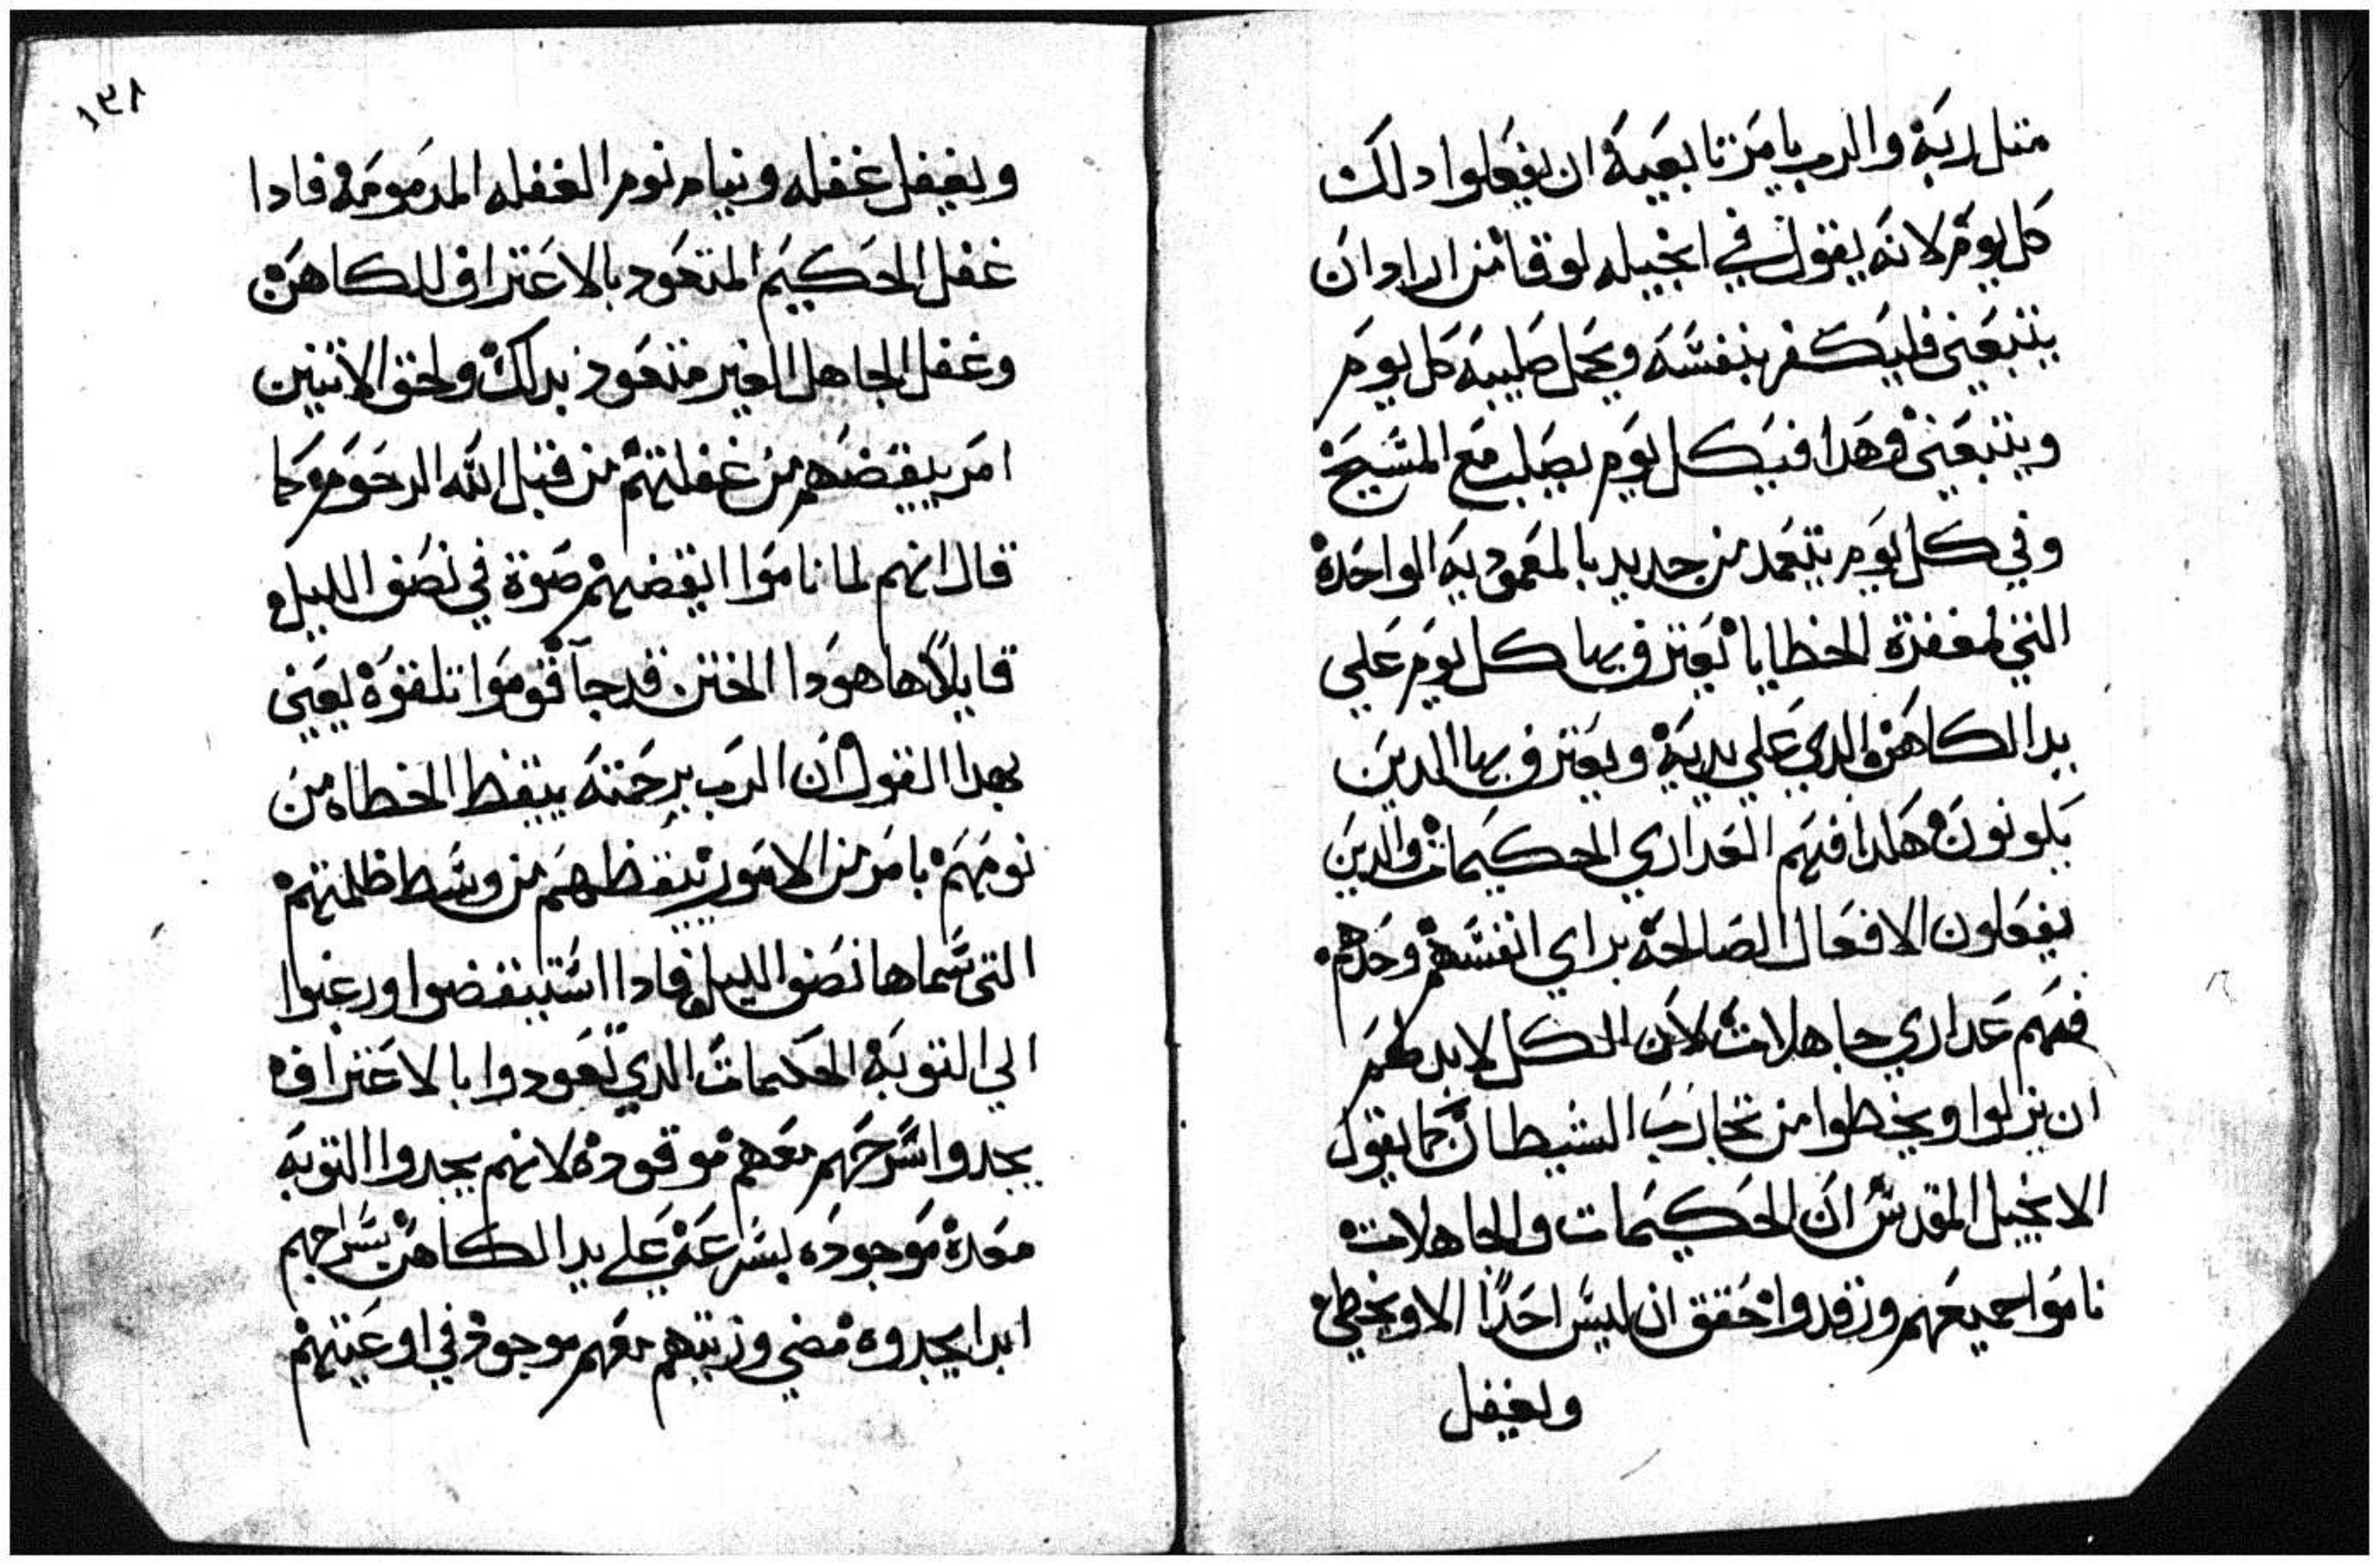 متل ربه والرب يامر تابعيه ان يفعلوا دلك
كل يوم لانه يقول في انجيله لوقا من اراد ان
يتبعني فليكفر بنفسه ويحمل صليبه كل يوم
ويتبعني وهدا فيكل يوم يصلب مع المسيح
وفي كل يوم يتعمد من جديد بالمعموديه الواحده
التي لمغفرة الخطايا يعترف بها كل يوم علي
يد الكاهن والدي علي يديه ويعترف بها الدين
يكونون هكدا فهم العداري الحكيمات والدين
يفعلون الافعال الصالحه براي انفسهم وحدهم
فهم عداري جاهلات لان الكل لابد لهم
ان يزلوا ويخطوا من تجارب الشيطان كما يقول
الانجيل المقدس ان الحكيمات والجاهلات
ناموا جميعهم ورقدوا حقق ان ليس احدًا الا ويخطي
ويغفل
١٣٨
ويغفل غفله ونيام نوم الغفله المدمومه فادا
غفل الحكيم المتعود بالاعتراف للكاهن
وغفل الجاهل الغير متعود بدلك ولحق الاتنين
امر ييقضهم من غفلتهم من قبل الله الرحوم كما
قال انهم لما ناموا ايقضهم صوة في نصف الليل
قايلاً هاهودا الختن قد جآ قوموا تلقوه يعني
بهدا القول ان الرب برحمته ييقظ الخطاه من
نومهم بامر من الامور ييقظهم من وسط ظلمتهم
التي سماها نصف الليل فادا استيقضوا ورغبوا
الي التوبه الحكيمات الدي تعودوا بالاعتراف
يجدوا سرجهم معهم موقوده لانهم يجدوا التوبه
معدة موجوده بسرعه علي يد الكاهن سراجهم
ابدا يجدوه مضي وزيتهم معهم موجود في اوعيتهم